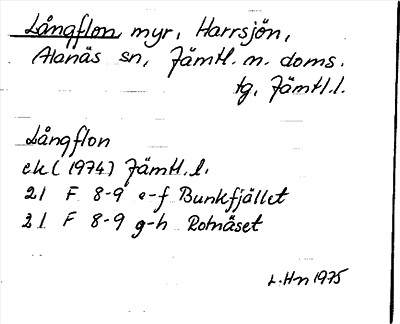 Långflon, myr, Harrsjön,
Alanäs sn, Jämtl. n. doms.
tg, Jämtl.l.
Långflon
ek (1974) Jämtl.l.
21 F 8-9 e-f Bunkfjället
21 F 8-9 g-h Rotnäset
L.Hn 1975